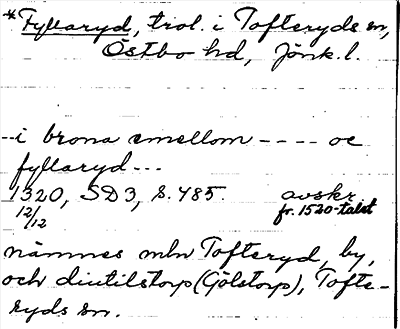 *Fyllaryd, trol. i Tofteryds sn,
Östbo hd, Jönk. l.
--i brona emellom ---- oc
fyllaryd---
1320, SD3, s. 485. avskr.
12/12 fr. 1520-talet
nämnes mln Tofteryd, by,
och diutilstorp (Gölstorp), Tofte-
ryds sn.